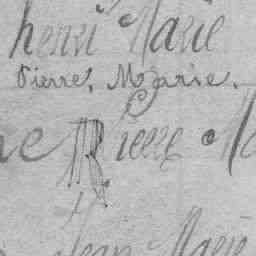 henri Marie
Pierre, Marie.
Pierre Ma
Jean Marie